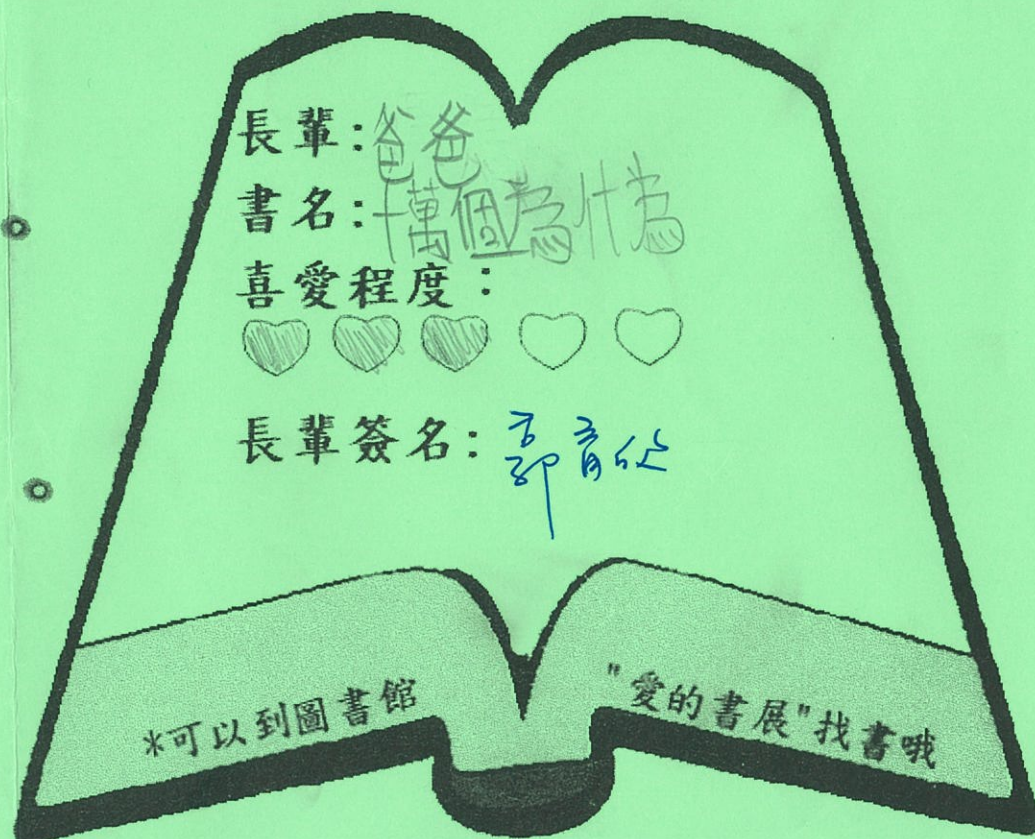 長輩:爸爸
書名:十萬個為什為
喜愛程度:
長輩簽名:郭育
*可以到圖書館
"愛的書展"找書哦